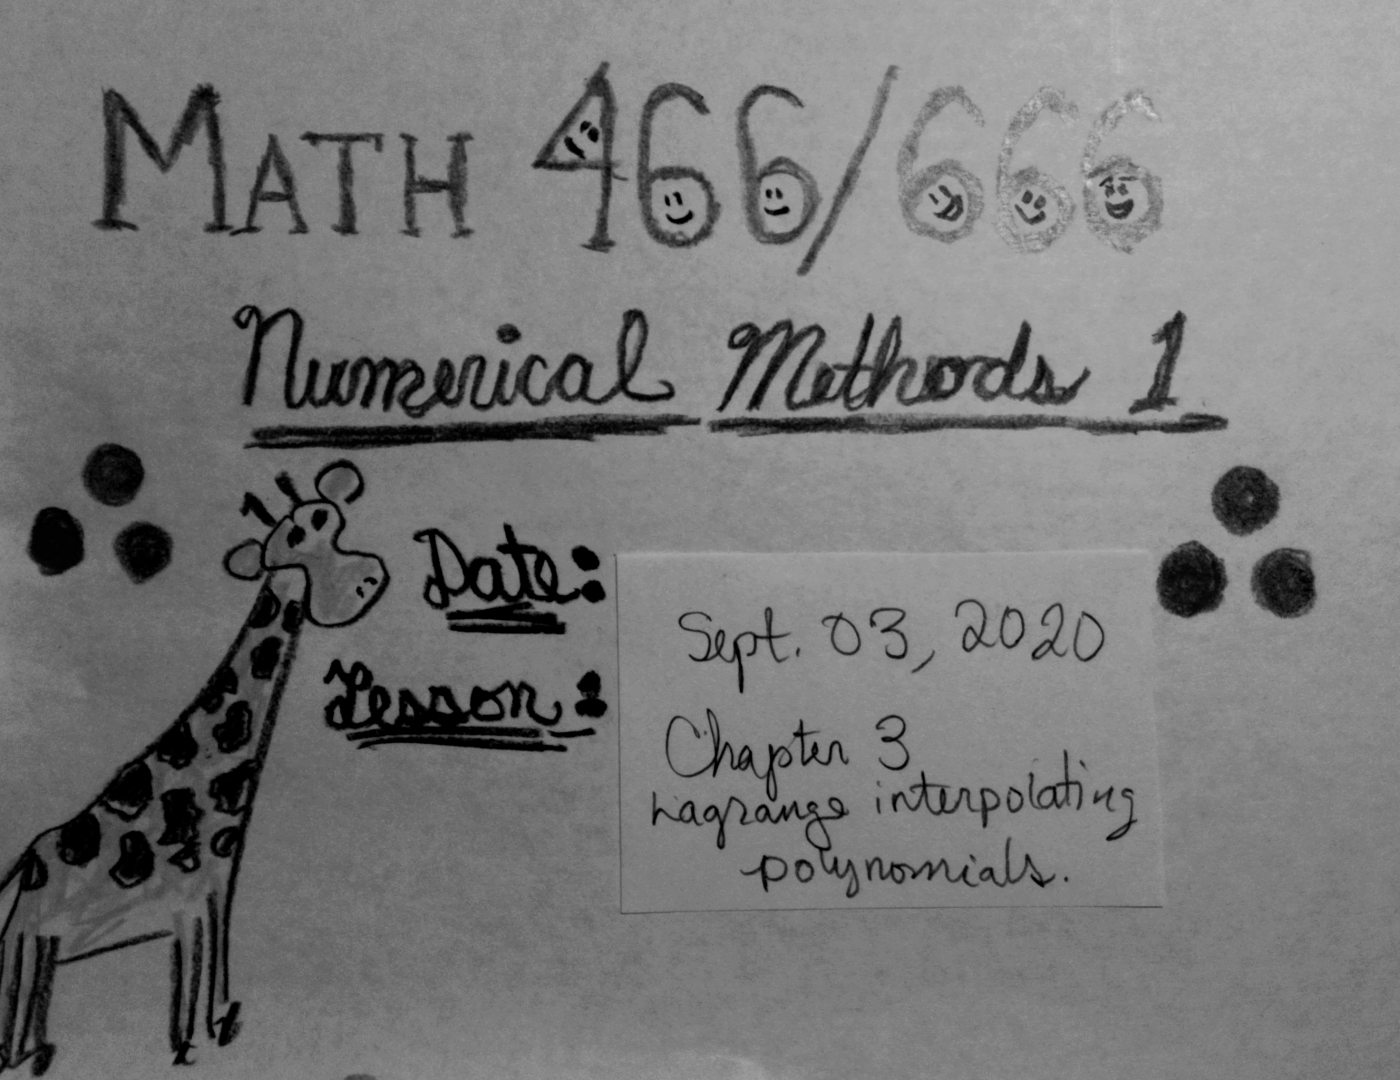 MATH 466/666
Numerical Methods 1
Date: Sept. 03, 2020
Lesson: Chapter 3
Lagrange interpolating
polynomials.